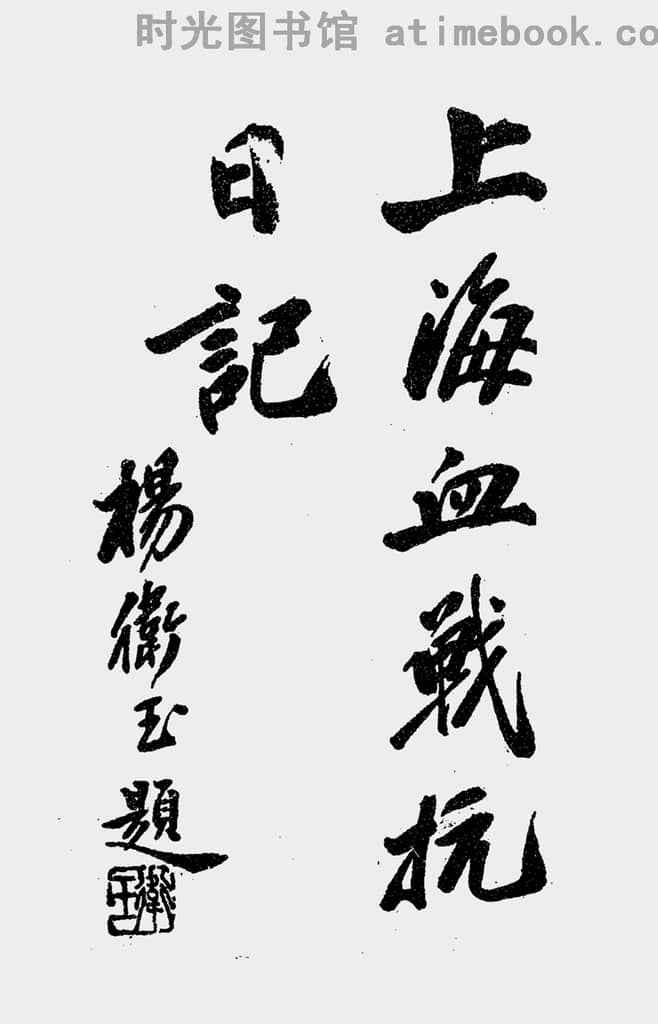 时光图书馆 atimebook.co
上海血戰抗
日記
楊衛玉題
衛玉